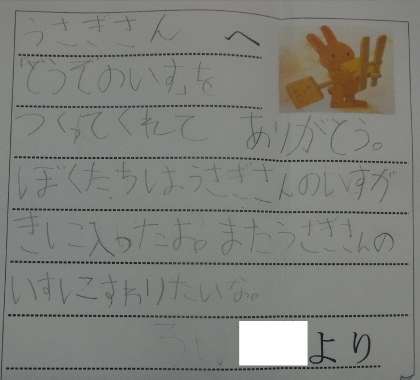 うさぎさん へ
どうてのいすを
つくってくれて ありがとう。
ぼくたちはうさぎさんのいすが
きに入ったお。またうさぎさんの
いすにすわりたいな。
より